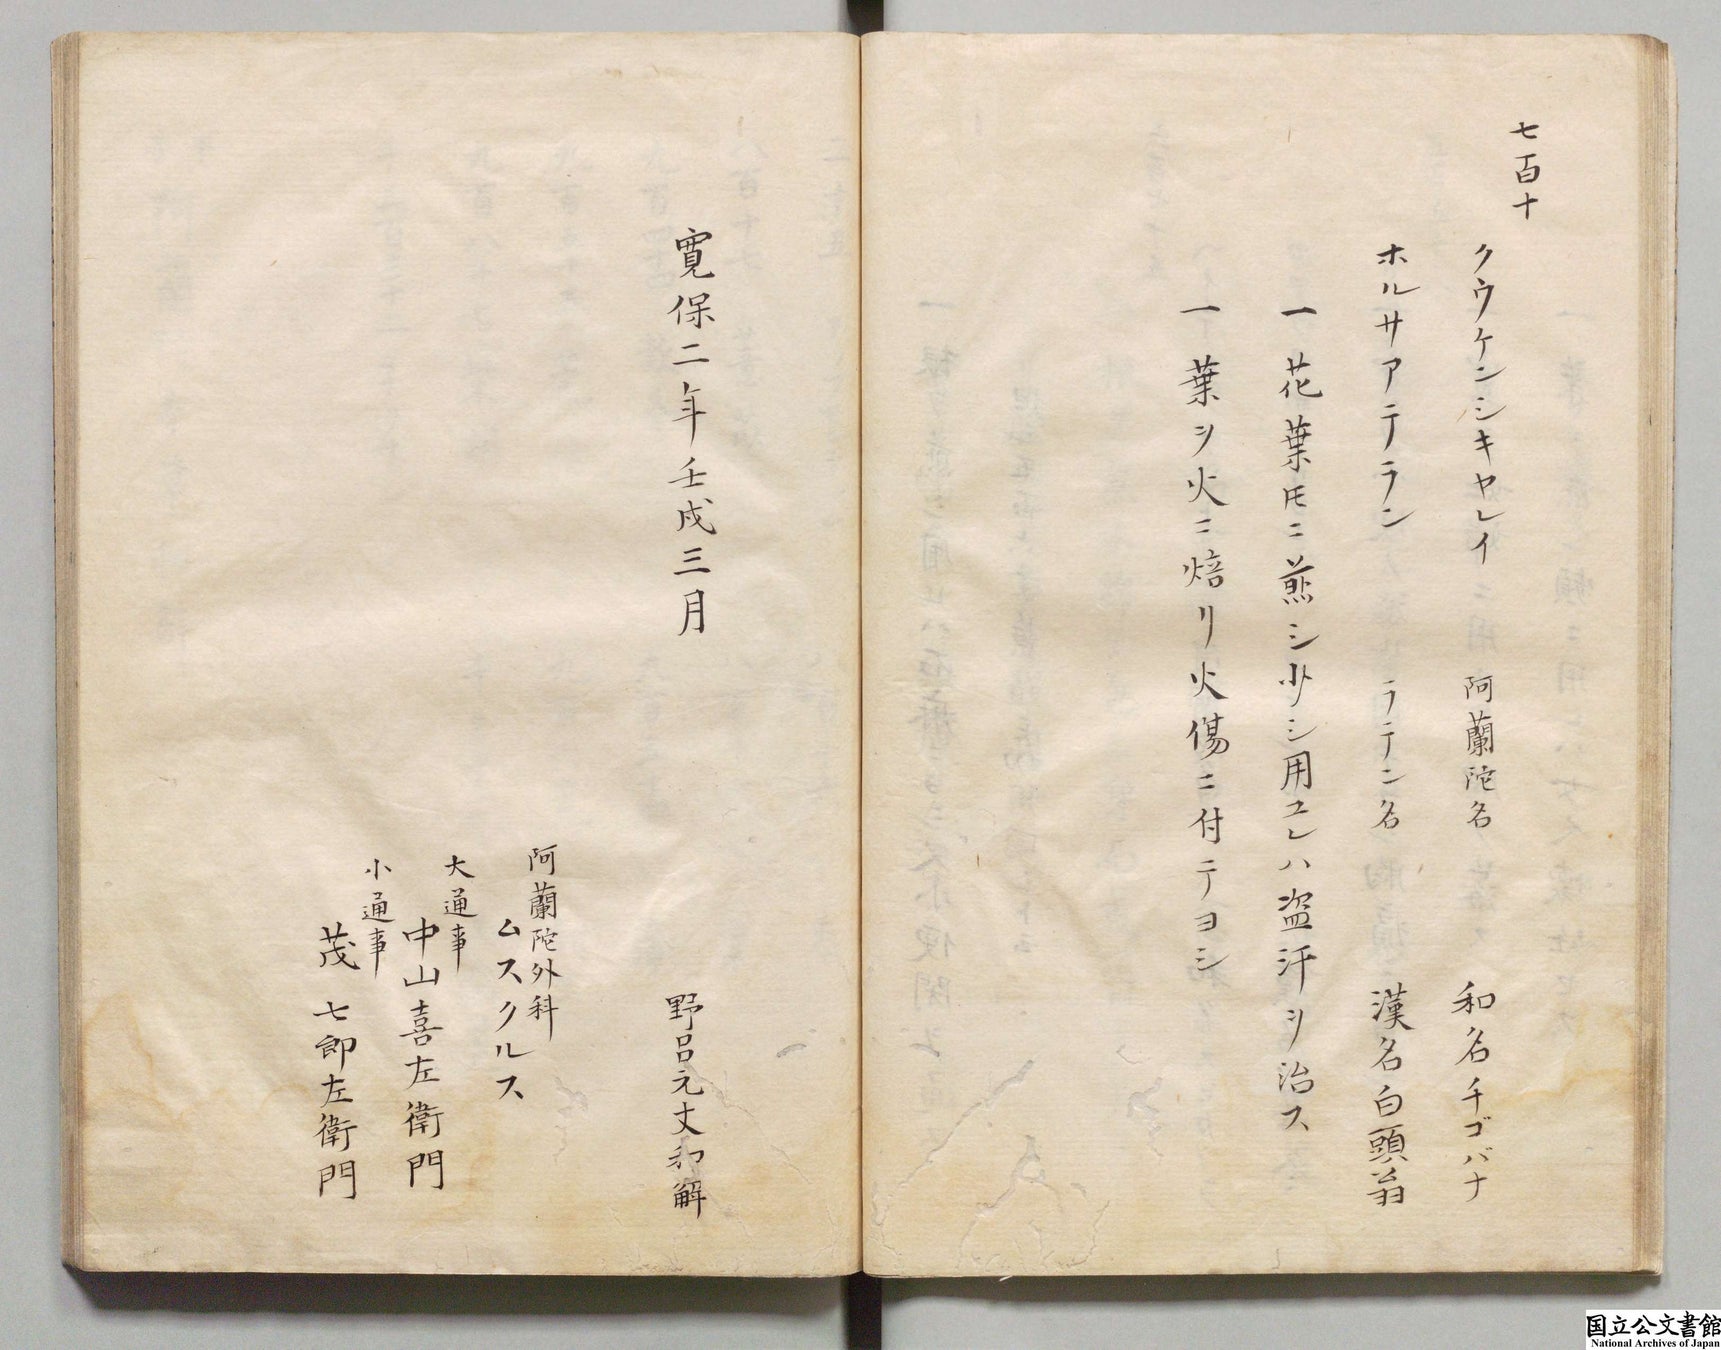 七百十
クウケンシキヤレイ 阿蘭陀名 和名チゴバナ
ホルサアテラン ラテン名 漢名白頭翁
一花葉𪜈ニ煎シ少シ用ユレハ盗汗ヲ治ス
一葉ヲ火ニ焙リ火傷ニ付テヨシ
寛保二年壬戌三月 野呂元丈和解
阿蘭陀外科
ムスクルス
大通事
中山喜左衛門
小通事
茂七郎左衛門
国立公文書館
National Archives of Japan